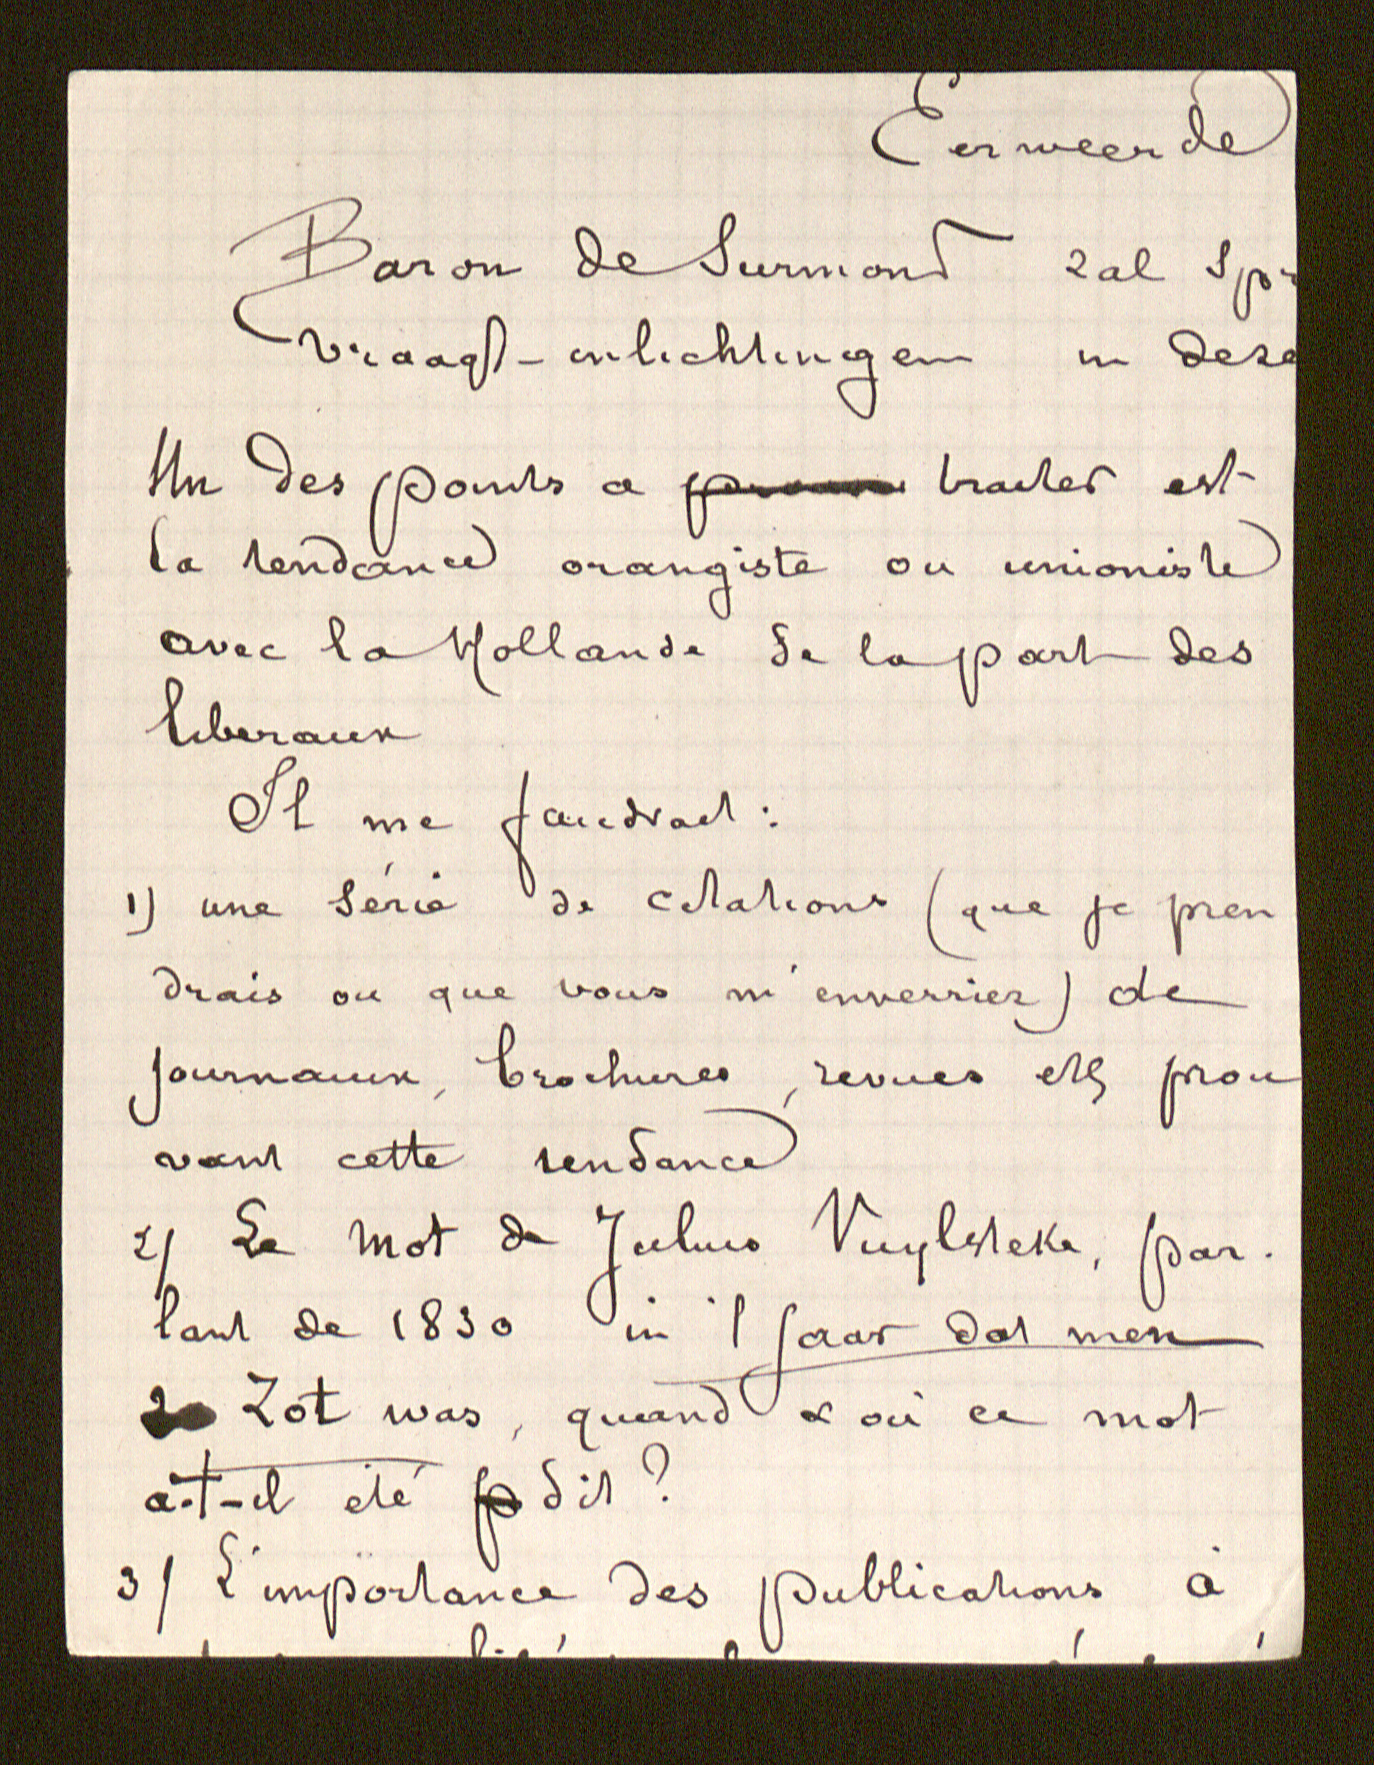 Eerweerde
Baron de Surmont zal spr
vraagt inlichtingen in deze
Un des points a traiter est
la tendance orangiste ou unioniste
avec la Hollande de la part des
liberaux
Il me faudrait :
1) une série de citations (que je pren
drais ou que vous m'enverriez) de
journaux, brochures, revues etc prou
vant cette tendance
2) Le mot de Julius Vuylsteke, par-
lant de 1830 in 't Jaar dat men
Zot was, quand & où ce mot
a-t-il été dit ?
3) L'importance des publications à